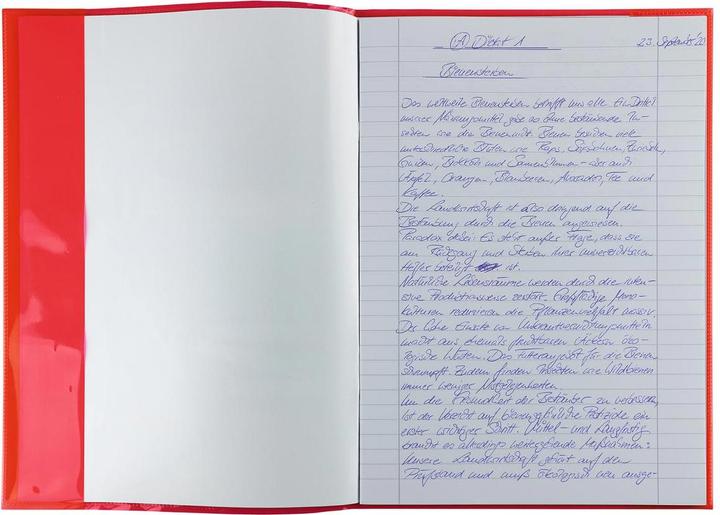 (A) Diktat 1 23. September '20
Bienensterben
Das weltweite Bienensterben betrifft uns alle. Ein Drittel
unserer Nahrungsmittel gäbe es ohne bestäubende In-
sekten wie die Bienen nicht. Bienen bestäuben viele
unterschiedliche Blüten wie Raps, Sojabohnen, Zwiebeln,
Gurken, Brokkoli und Sonnenblumen - aber auch
Äpfel, Orangen, Blaubeeren, Avocados, Tee und
Kaffee.
Die Landwirtschaft ist also dringend auf die
Bestäubung durch die Bienen angewiesen.
Paradox dabei: Es steht außer Frage, dass sie
am Rückgang und Sterben ihrer unverzichtbaren
Helfer beteiligt ist.
Natürliche Lebensräume werden durch die inten-
sive Produktionsweise zerstört. Großflächige Mono-
kulturen reduzieren die Pflanzenvielfalt massiv.
Der hohe Einsatz von Unkrautvernichtungsmitteln
macht aus ehemals fruchtbaren Äckern öko-
logische Wüsten. Das Futterangebot für die Bienen
schrumpft. Zudem finden Insekten wie Wildbienen
immer weniger Nistgelegenheiten.
Um die Gesundheit der Bestäuber zu verbessern,
ist der Verzicht auf bienengefährliche Pestizide ein
erster wichtiger Schritt. Mittel- und langfristig
braucht es allerdings weitergehende Maßnahmen:
Unsere Landwirtschaft gehört auf den
Prüfstand und muß ökologisch neu ausge-